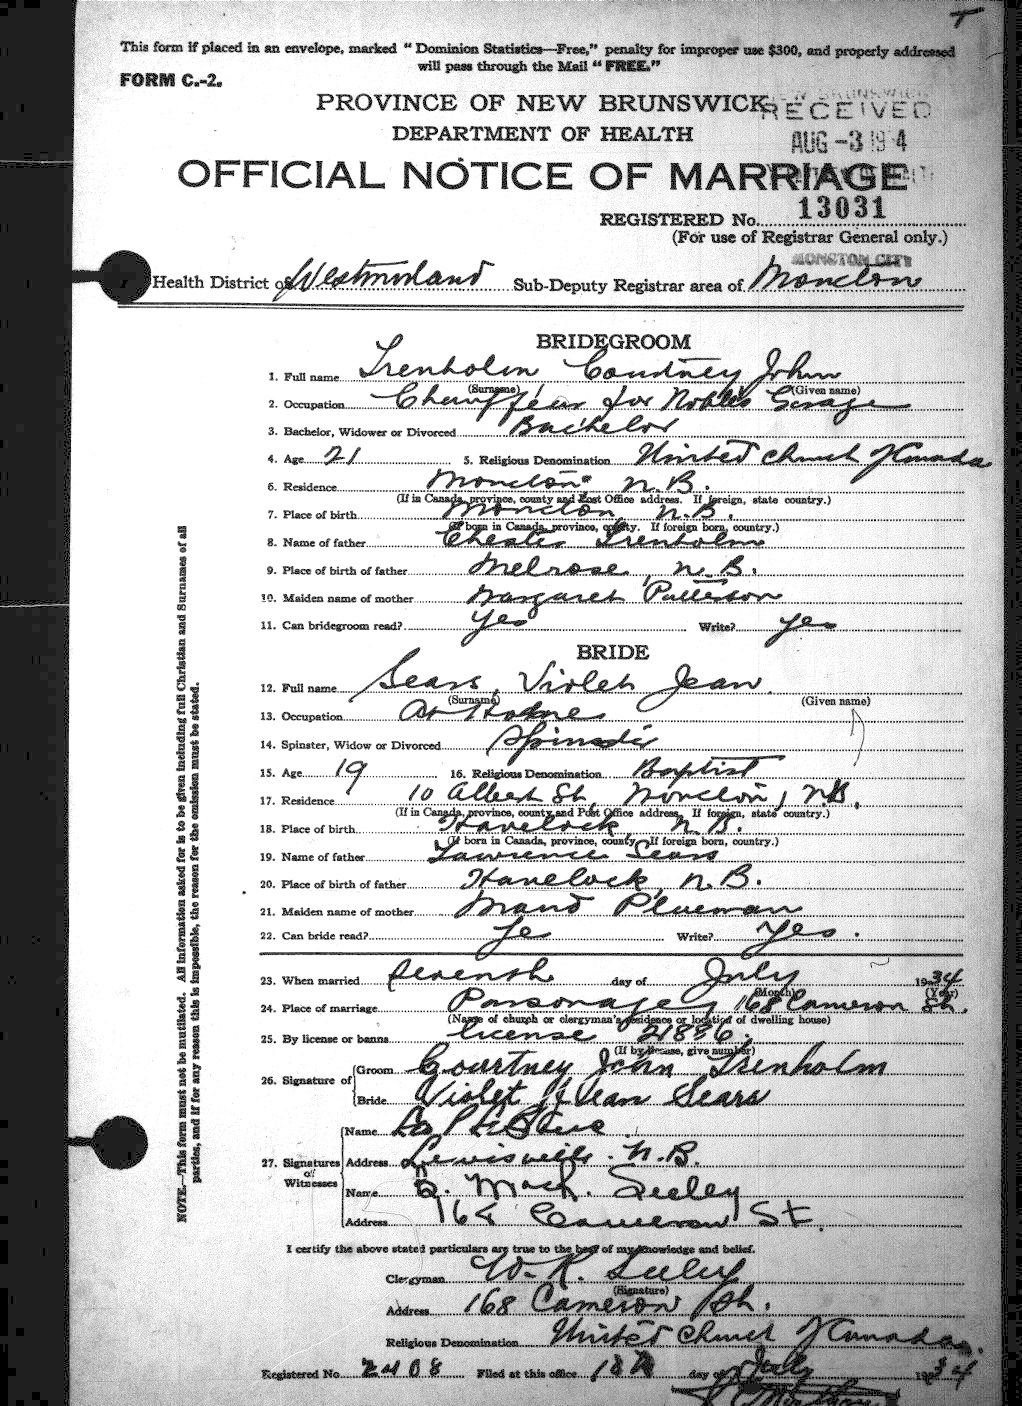 This form if placed in an envelope, marked "Dominion Statistics—Free," penalty for improper use $300, and properly addressed
will pass through the Mail "FREE."
FORM C.-2.
PROVINCE OF NEW BRUNSWICK
RECEIVED
DEPARTMENT OF HEALTH
AUG -3 1934
OFFICIAL NOTICE OF MARRIAGE
REGISTERED No. 13031
(For use of Registrar General only.)
MONCTON CITY
Health District of Westmorland Sub-Deputy Registrar area of Moncton
BRIDEGROOM
1. Full name Trenholm Courtney John
(Surname) (Given name)
2. Occupation Chauffeur for Nobles Garage
3. Bachelor, Widower or Divorced Bachelor
4. Age 21 5. Religious Denomination United Church of Canada
6. Residence Moncton N.B.
(If in Canada, province, county and Post Office address. If foreign, state country.)
7. Place of birth Moncton, N.B.
(If born in Canada, province, county. If foreign born, country.)
8. Name of father Chester Trenholm
9. Place of birth of father Melrose, N.B.
10. Maiden name of mother Margaret Patterson
11. Can bridegroom read? Yes Write? Yes
BRIDE
12. Full name Sears, Violet Jean
(Surname) (Given name)
13. Occupation At Home
14. Spinster, Widow or Divorced Spinster
15. Age 19 16. Religious Denomination Baptist
17. Residence 10 Albert St, Moncton, N.B.
(If in Canada, province, county and Post Office address. If foreign, state country.)
18. Place of birth Havelock N.B.
(If born in Canada, province, county. If foreign born, country.)
19. Name of father Lawrence Sears
20. Place of birth of father Havelock, N.B.
21. Maiden name of mother Maud
22. Can bride read? Yes Write? Yes.
23. When married Seventh day of July 1934
(Month) (Year)
24. Place of marriage Parsonage, 168 Cameron St.
(Name of church or clergyman's residence or location of dwelling house)
25. By license or banns License 21836.
(If by license, give number)
26. Signature of Groom Courtney John Trenholm
Bride Violet Jean Sears
27. Signatures of Witnesses Name
Address Lewisville N.B.
Name Mack. Seeley
Address 168 Cameron St.
I certify the above stated particulars are true to the best of my knowledge and belief.
Clergyman W. R. Seeley
(Signature)
Address 168 Cameron St.
Religious Denomination United Church of Canada.
Registered No. 2408 Filed at this office 18th day of July 1934
NOTE.—This form must not be mutilated. All information asked for is to be given including full Christian and Surnames of all
parties, and if for any reason this is impossible, the reason for the omission must be stated.